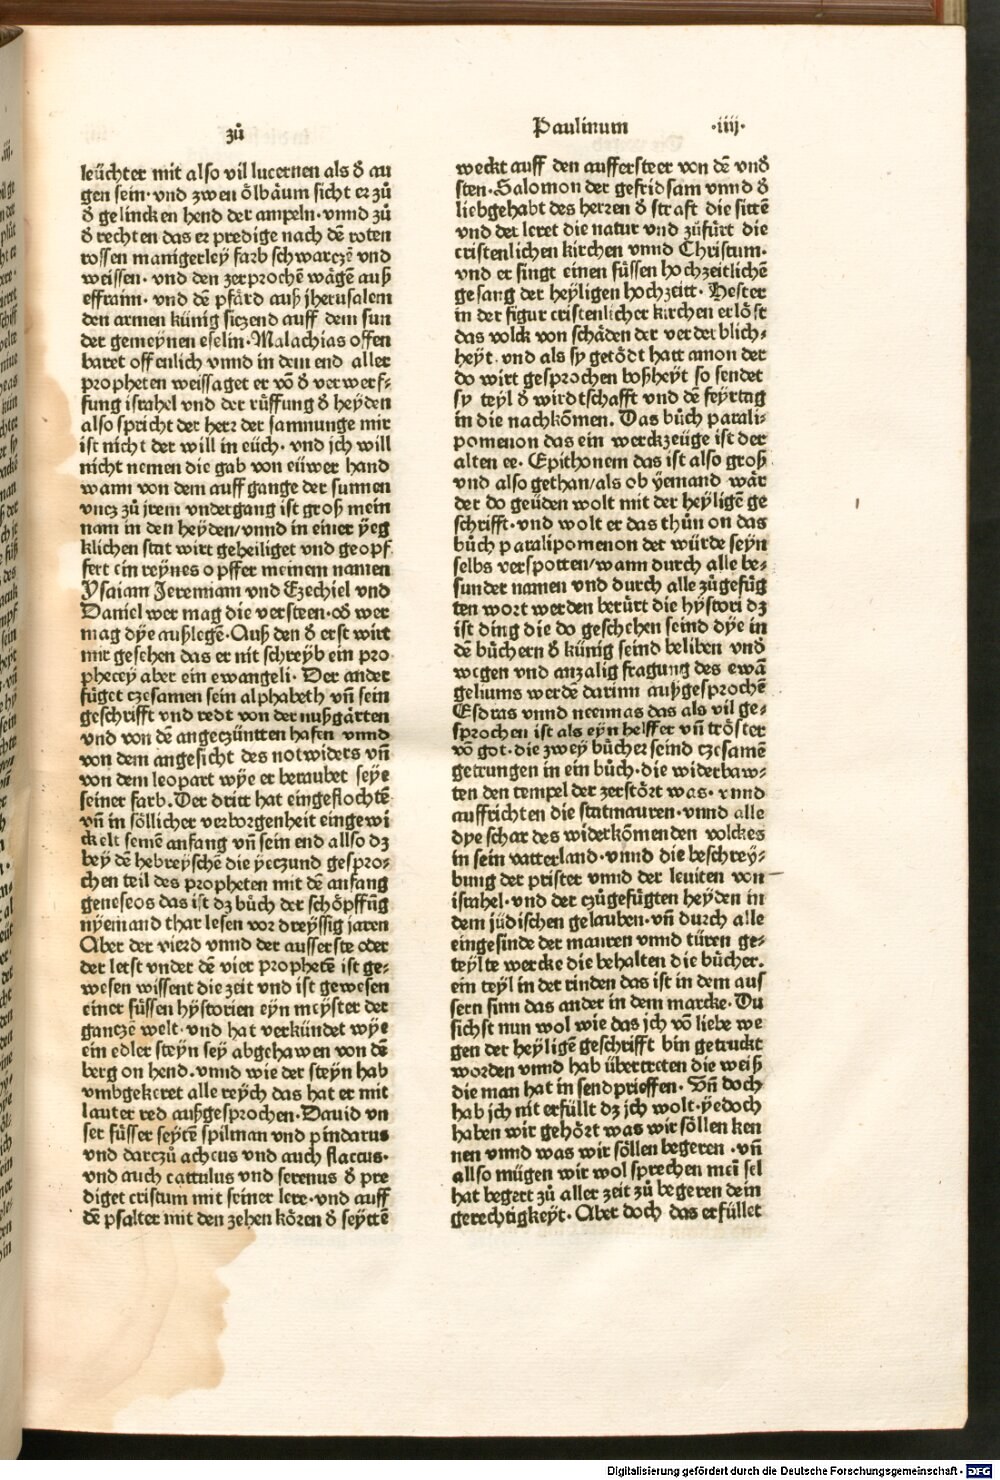 zů
Paulinum
·iiij·
leüchter mit also vil lucernen als ð au
gen sein· vnd zwen ölbäum sicht er zů
ð gelincken hend der ampeln· vnnd zů
ð rechten das er predige nach dē roten
rossen manigerley farb schwarczē vnd
weissen· vnd den zerprochē wägē auß
effraim· vnd dē pfärd auß jherusalem
den armen künig siczend auff dem fun
der gemeynen eselin· Malachias offen
baret offenlich vnnd in dem end aller
propheten weissaget er võ ð verwerf⸗
fung israhel vnd der rüffung ð heyden
also spricht der herr der samnunge mir
ist nicht der will in eüch· vnd jch will
nicht nemen die gab von eüwer hand
wann von dem auffgange der sunnen
vncz zů jrem vndergang ist groß mein
nam in den heyden/ vnnd in einer yeg
klichen stat wirt geheiliget vnd geopf
fert ein reynes opffer meinem namen
Ysaiam Jeremiam vnd Ezechiel vnd
Daniel wer mag die versteen· oð wer
mag dye außlegē· Auß den ð erst wirt
mir gesehen das er nit schreyb ein pro
phecey aber ein ewangeli· Der ander
füget czesamen sein alphabeth vñ sein
geschrifft vnd redt von der nußgärten
vnd von dē angeczüntten hafen vnnd
von dem angesicht des notwiders vñ
von dem leopart wye er beraubet seye
seiner farb. Der dritt hat eingeflochtē
vñ in söllicher verborgenheit eingewi
ckelt seinē anfang vñ sein end allso dz
bey dē hebreyschē die yeczund gespro⸗
chen teil des propheten mit dē anfang
geneseos das ist dz bůch der schöpffūg
nyemand thar lesen vor dreyssig jaren
Aber der vierd vnnd der ausserste oder
der letst vnder dē vier prophetē ist ge⸗
wesen wissent die zeit vnd ist gewesen
einer süssen hystorien eyn meyster der
ganczē welt· vnd hat verkündet wye
ein edler steyn sey abgehawen von dē
berg on hend· vnnd wie der steyn hab
vmbgekeret alle reych das hat er mit
lauter red außgesprochen· Dauid vn
ser süsser seytē spilman vnd pindarus
vnd darczů acheus vnd auch flaccus·
vnd auch cattulus vnd serenus ð pre
diget cristum mit seiner lere· vnd auff
dē psalter mit den zehen kören ð seyttē
weckt auff den auffersteer von dē vnð
sten· Salomon der gefridsam vnnd ð
liebgehabt des herren ð straft die sittē
vnd der leret die natur vnd zůfürt die
cristenlichen kirchen vnnd Christum·
vnd er singt einen süssen hochzeitlichē
gesang der heyligen hochzeitt· Hester
in der figur cristenlicher kirchen erlöst
das volck von schäden der verderblich⸗
heyt· vnd als sy getödt hatt amon der
do wirt gesprochen boßheyt so sendet
sy teyl ð wirdtschafft vnd dē feyrtag
in die nachkömen. Das bůch parali⸗
pomenon das ein werckzeüge ist der
alten ee· Epithonem das ist also groß
vnd also gethan/ als ob yemand wär
der do geüden wolt mit der heyligē ge
schrifft· vnd wolt er das thůn on das
bůch paralipomenon der würde seyn
selbs verspotten/ wann durch alle be⸗
sunder namen vnd durch alle zůgefüg
ten wort werden berürt die hystori dz
ist ding die do geschehen seind dye in
dē bůchern ð künig seind beliben vnð
wegen vnd anzalig fragung des ewā
geliums werdē darinn außgesprochē
Esdras vnnd neemias das als vil ge⸗
sprochen ist als eyn helffer vñ tröster
võ got· die zwey bůcher seind czesamē
getrungen in ein bůch· die widerbaw⸗
ten den tempel der zerstört was· vnnd
auffrichten die statmauren· vnnd alle
dye schar des widerkömenden volckes
in sein vatterland· vnnd die beschrey⸗
bung der prister vnnd der leuiten von
israhel· vnd der czůgefügten heyden in
dem jüdischen gelauben· vñ durch alle
eingesinde der mauren vnnd türen ge⸗
teylte wercke die behalten die bůcher.
ein teyl in der rinden das ist in dem aus
sern sinn das ander in dem marcke· Du
sichst nun wol wie das jch võ liebe we
gen der heyligē geschrifft bin getruckt
worden vnnd hab übertretten die weiß
die man hat in sendprieffen· Vñ doch
hab jch nit erfüllt dz jch wolt· yedoch
haben wir gehört was wir söllen ken
nen vnnd was wir söllen begeren· vñ
allso mügen wir wol sprechen mei sel
hat begert zů aller zeit zů begeren dein
gerechtigkeyt· Aber doch das erfüllet
Digitalisierung gefördert durch die Deutsche Forschungsgemeinschaft - DFG